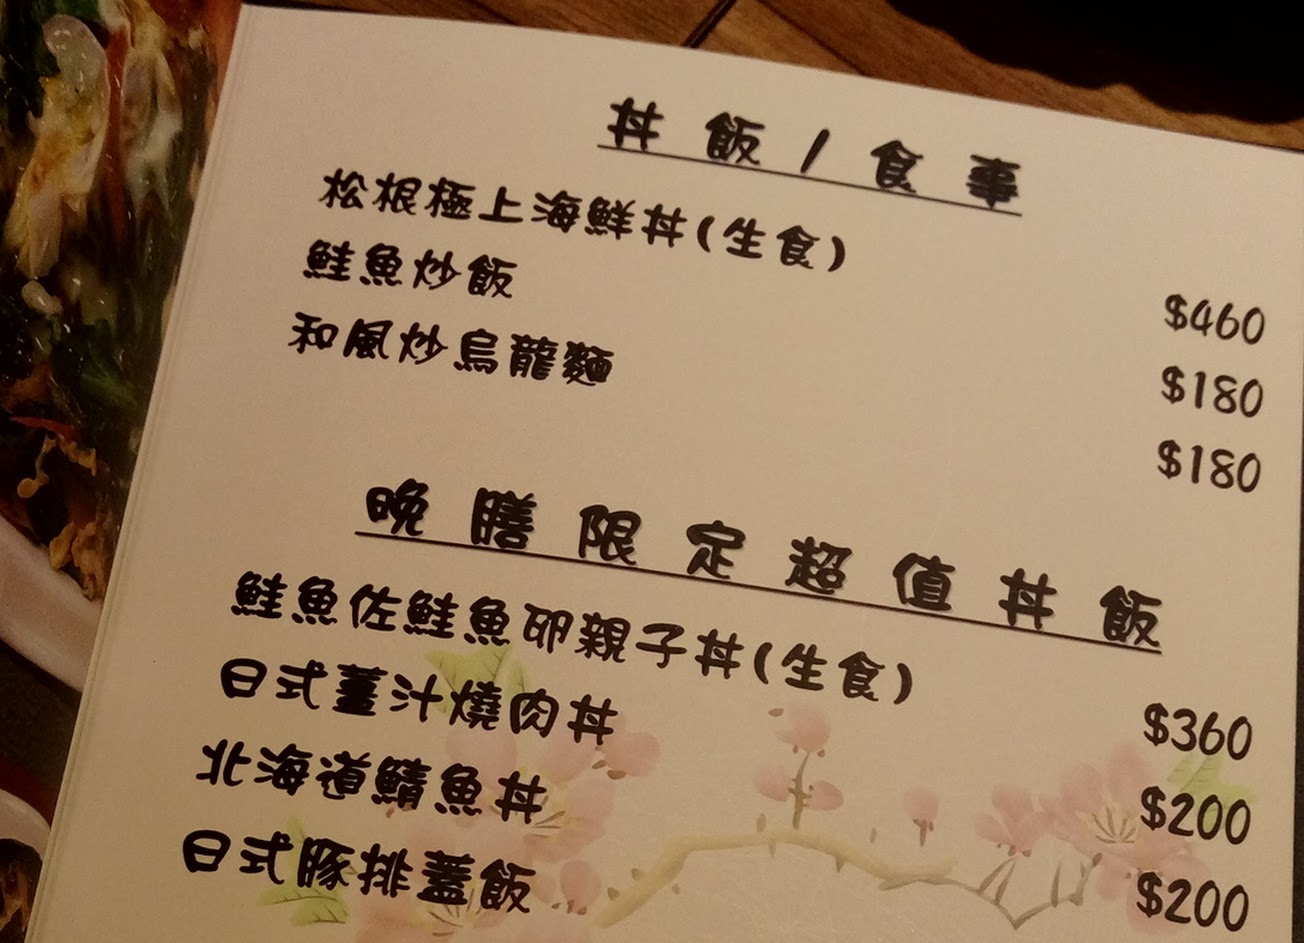 丼 飯 / 食 事
松根極上海鮮丼(生食) $460
鮭魚炒飯 $180
和風炒烏龍麵 $180
晚 膳 限 定 超 值 丼 飯
鮭魚佐鮭魚卵親子丼(生食) $360
日式薑汁燒肉丼 $200
北海道鯖魚丼 $200
日式豚排蓋飯